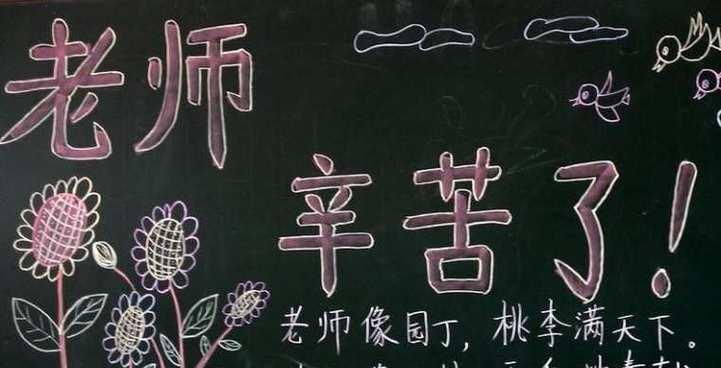 老师
辛苦了!
老师像园丁,桃李满天下。